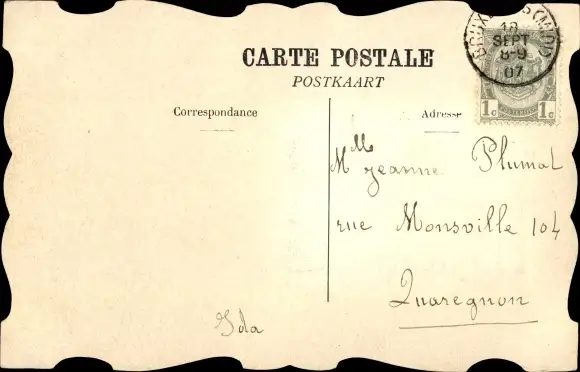 CARTE POSTALE
POSTKAART
Correspondance
Adresse
18
SEPT
8-9
07
1c 1c
Mlle Jeanne Plumat
rue Monsville 104
Quaregnon
Ida